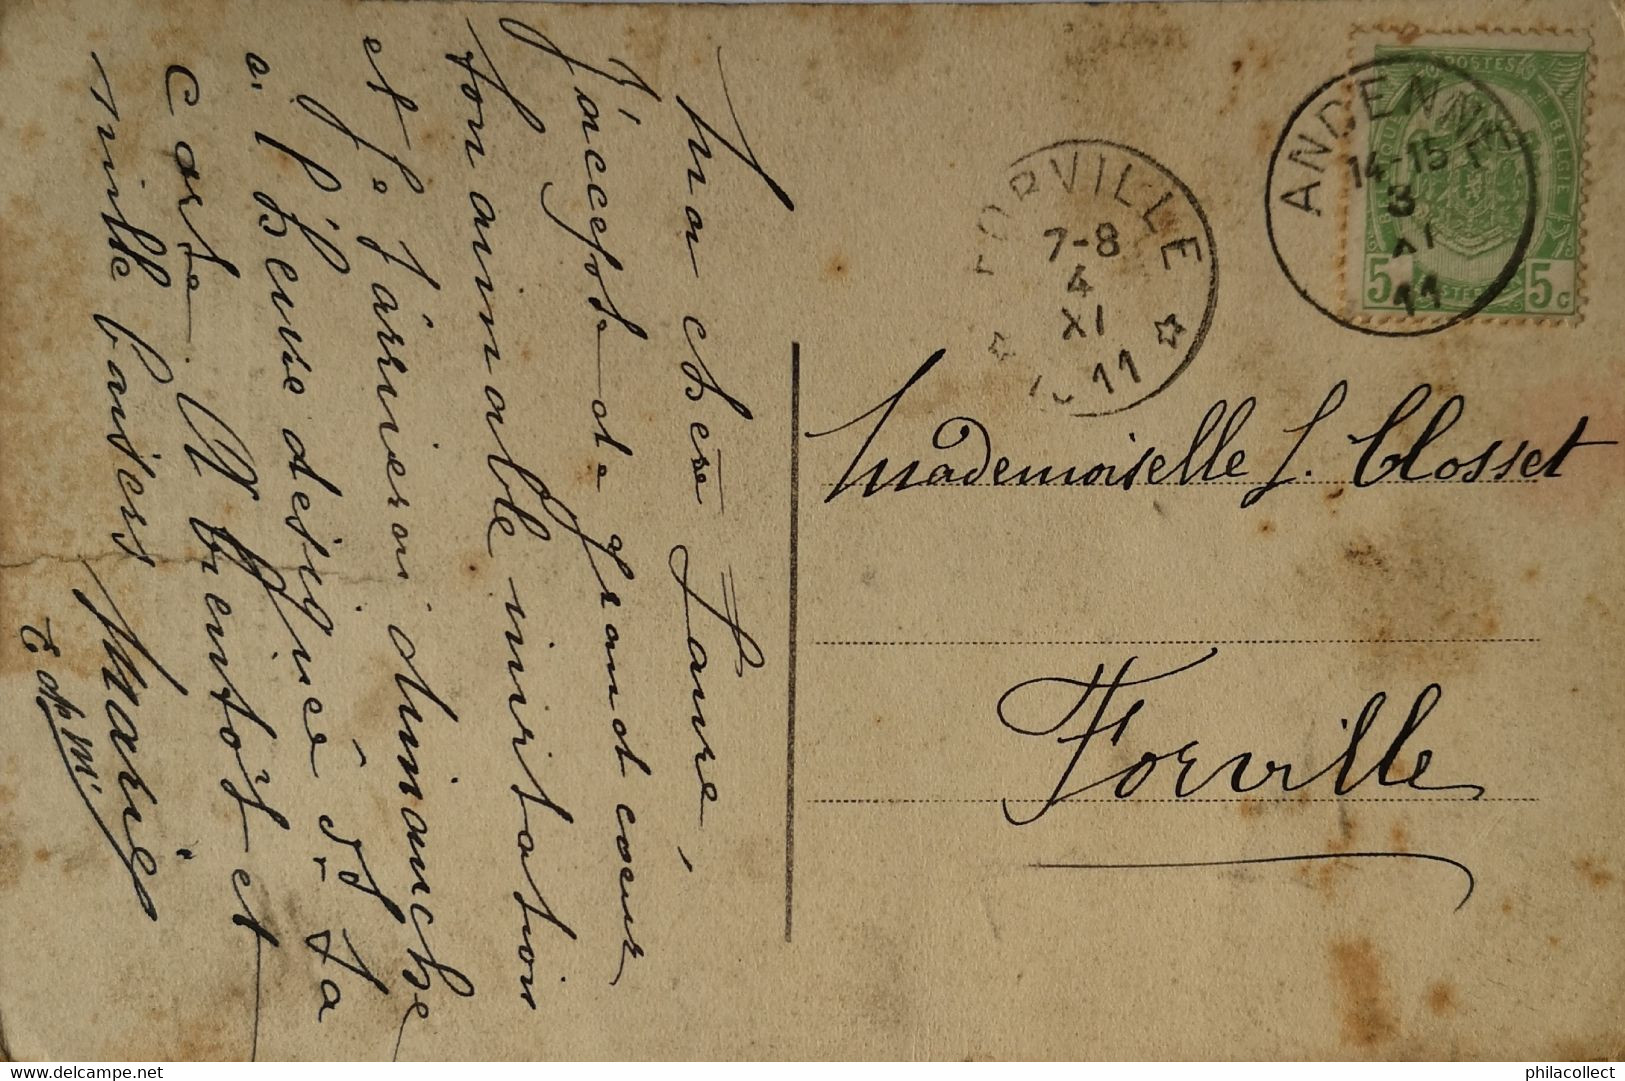 Ma chère Laure,
J'accepte de grand coeur
ton aimable invitation
et je t'arriverai dimanche
à l'heure désignée s/ ta
carte. A bientôt et
mille baisers Maria
Mademoiselle L. Closset
Forville
FORVILLE
7-8
4
XI
11
ANDENNE
14-15
3
XI
11
POSTES
BELGIE
5 5 c
delcampe.net
philacollect